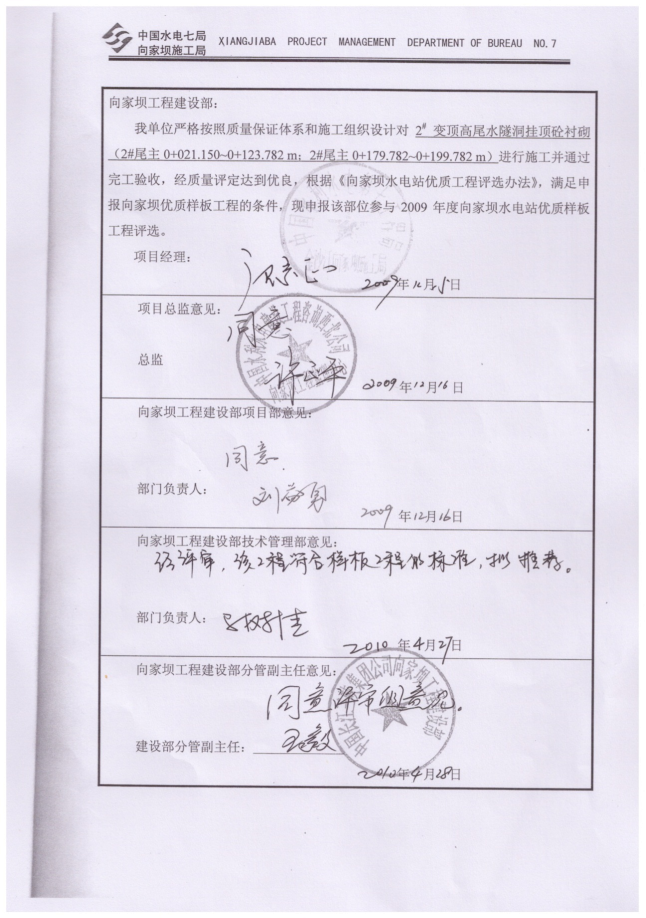 中国水电七局
向家坝施工局
XIANGJIABA PROJECT MANAGEMENT DEPARTMENT OF BUREAU NO.7
向家坝工程建设部：
我单位严格按照质量保证体系和施工组织设计对 2# 变顶高尾水隧洞挂顶砼衬砌
（2#尾主 0+021.150~0+123.782 m；2#尾主 0+179.782~0+199.782 m）进行施工并通过
完工验收，经质量评定达到优良，根据《向家坝水电站优质工程评选办法》，满足申
报向家坝优质样板工程的条件，现申报该部位参与 2009 年度向家坝水电站优质样板
工程评选。
项目经理：
2009年12月15日
项目总监意见：
同意
总监
许平
2009年12月16日
向家坝工程建设部项目部意见：
同意.
部门负责人：
刘益勇
2009年12月16日
向家坝工程建设部技术管理部意见：
经评审，该工程符合样板工程的标准，拟推荐。
部门负责人：
2010年4月27日
向家坝工程建设部分管副主任意见：
同意评审组意见。
建设部分管副主任：
王毅
2010年4月28日